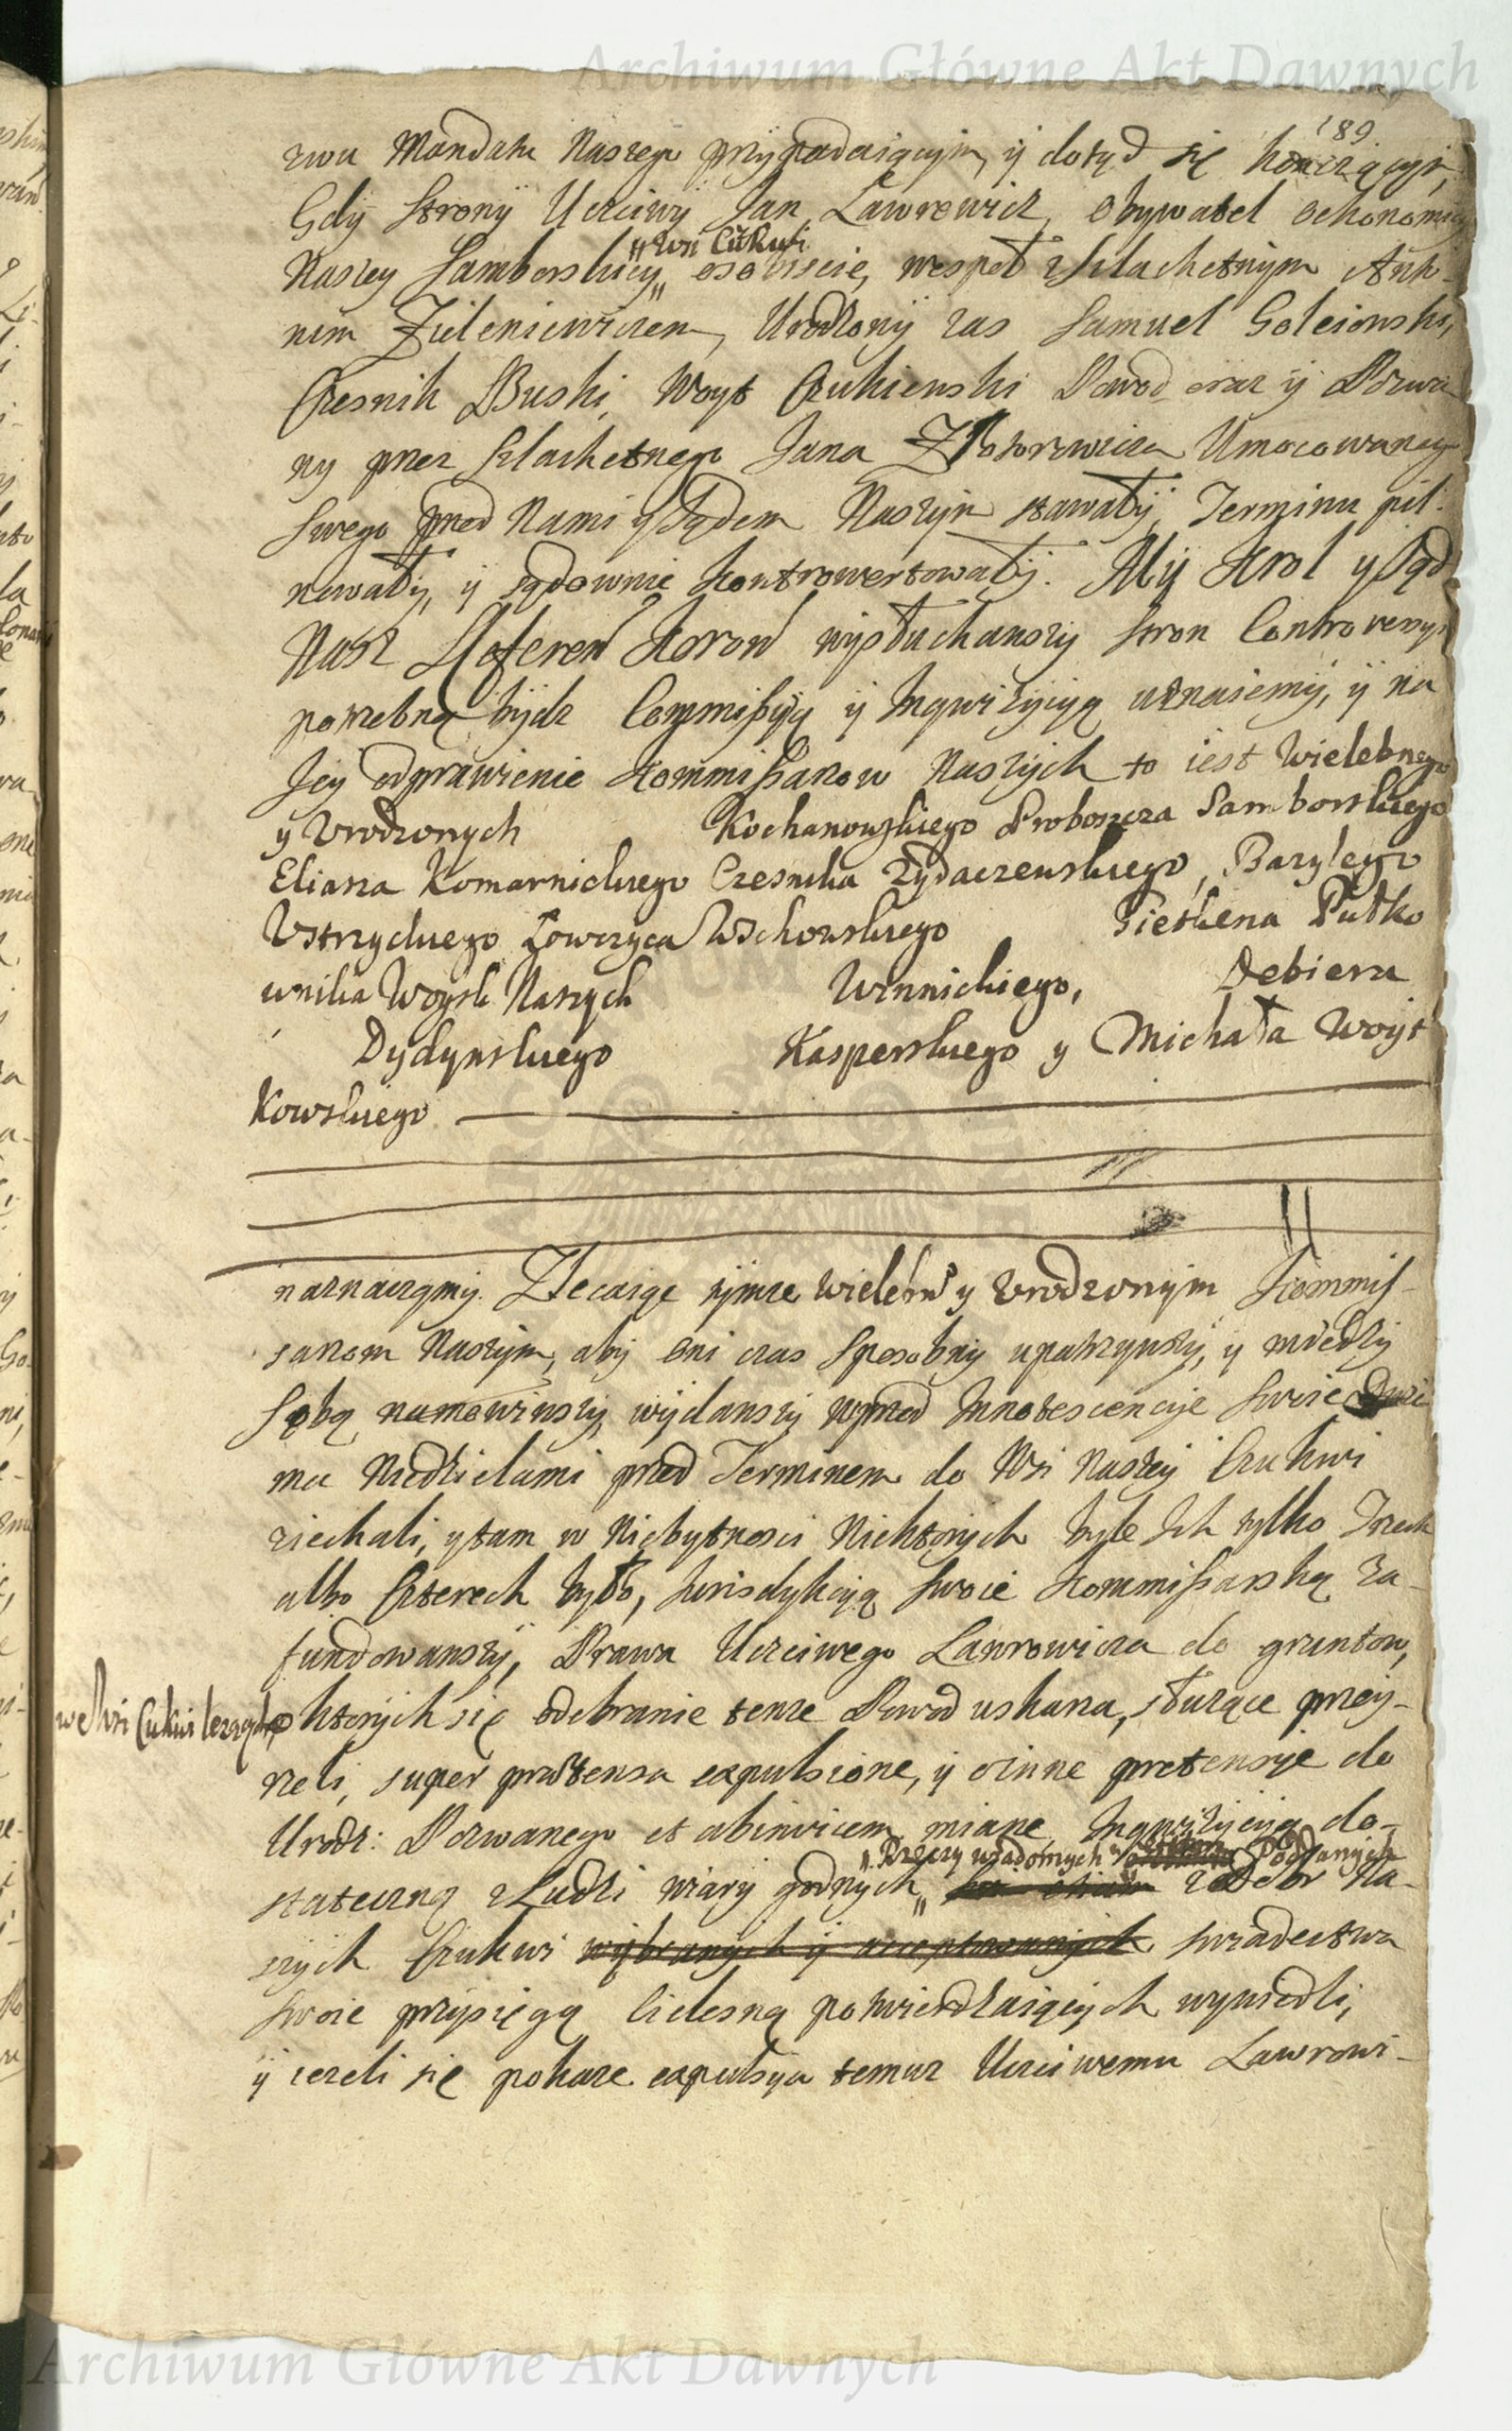 Archiwum Główne Akt Dawnych
189
zwu Mandatu Naszego przypadaiącym, y dotąd się kończącym,
Gdy Strony Uczciwy Jan Lawrowicz, obywatel oekonomiey
"wsi Cukwi
Naszey Samborskiey,, osobiscie, wespoł z Szlachetnym Anto-
nim Zieleniewiczem, Urodzony zas Samuel Goleiowski,
Czesnik Buski, Woyt Czukiewski Powod oraz y Pozwa
ny przez Szlachetnego Jana Złotorowicza Umocowanego
Swego przed Nami y Sądem Naszym stawały, Terminu pil:
nowały, y sądownie kontrowertowały. My Krol y Sąd
Nasz Referen Koron wysłuchawszy stron Controversyi
potrzebną bydz Commissyą y Inqwizycyą uznaiemy, y na
Jey odprawienie Kommissarzow Naszych to iest Wielebnego
y Urodzonych Kochanowskiego Proboszcza Samborskiego
Eliasza Komarnickiego Czesnika Zydaczewskiego, Bazylego
Ustrzyckiego Łowczyca Wschowskiego Pułko
wnika Woysk Naszych Winnickiego, Debiera
Dydynskiego Kasperskiego y Michała Woyt
Kowskiego
naznaczamy. Zlecaiąc tymze Wieleb y Urodzonym Kommis-
sarzom Naszym, aby oni czas sposobny upatrzywszy, y między
Sobą namowiwszy, wydawszy wprzod Innotescencye swoie dwie
ma Niedzielami przed Terminem do Wsi Naszey Czukwi
ziechali, y tam w Niebytnosci Niektorych byle Ich tylko Trzech
albo Czterech było, Jurisdykcyą swoię Kommissarską za-
fundowawszy, Prawa Uczciwego Lawrowicza do gruntow,
we Wsi Cukwi lezących
o ktorych się odebranie tenze Powod uskarza, słuzące przey-
rzeli, super praetensa expulsione, y o inne pretensye do
Urodz: Pozwanego et abinvicem miane, Inqwizycyą do-
"Rzeczy wiadomych Poddanych
stateczną z Ludzi wiary godnych,, z Dobr Na-
szych Czukwi wybranych y acceptowanych swiadectwa
swoie przysięgą cielesną potwierdzaiących wywiedli,
y iezeli się pokaze expulsya temuz Uczciwemu Lawrowi-
Archiwum Główne Akt Dawnych